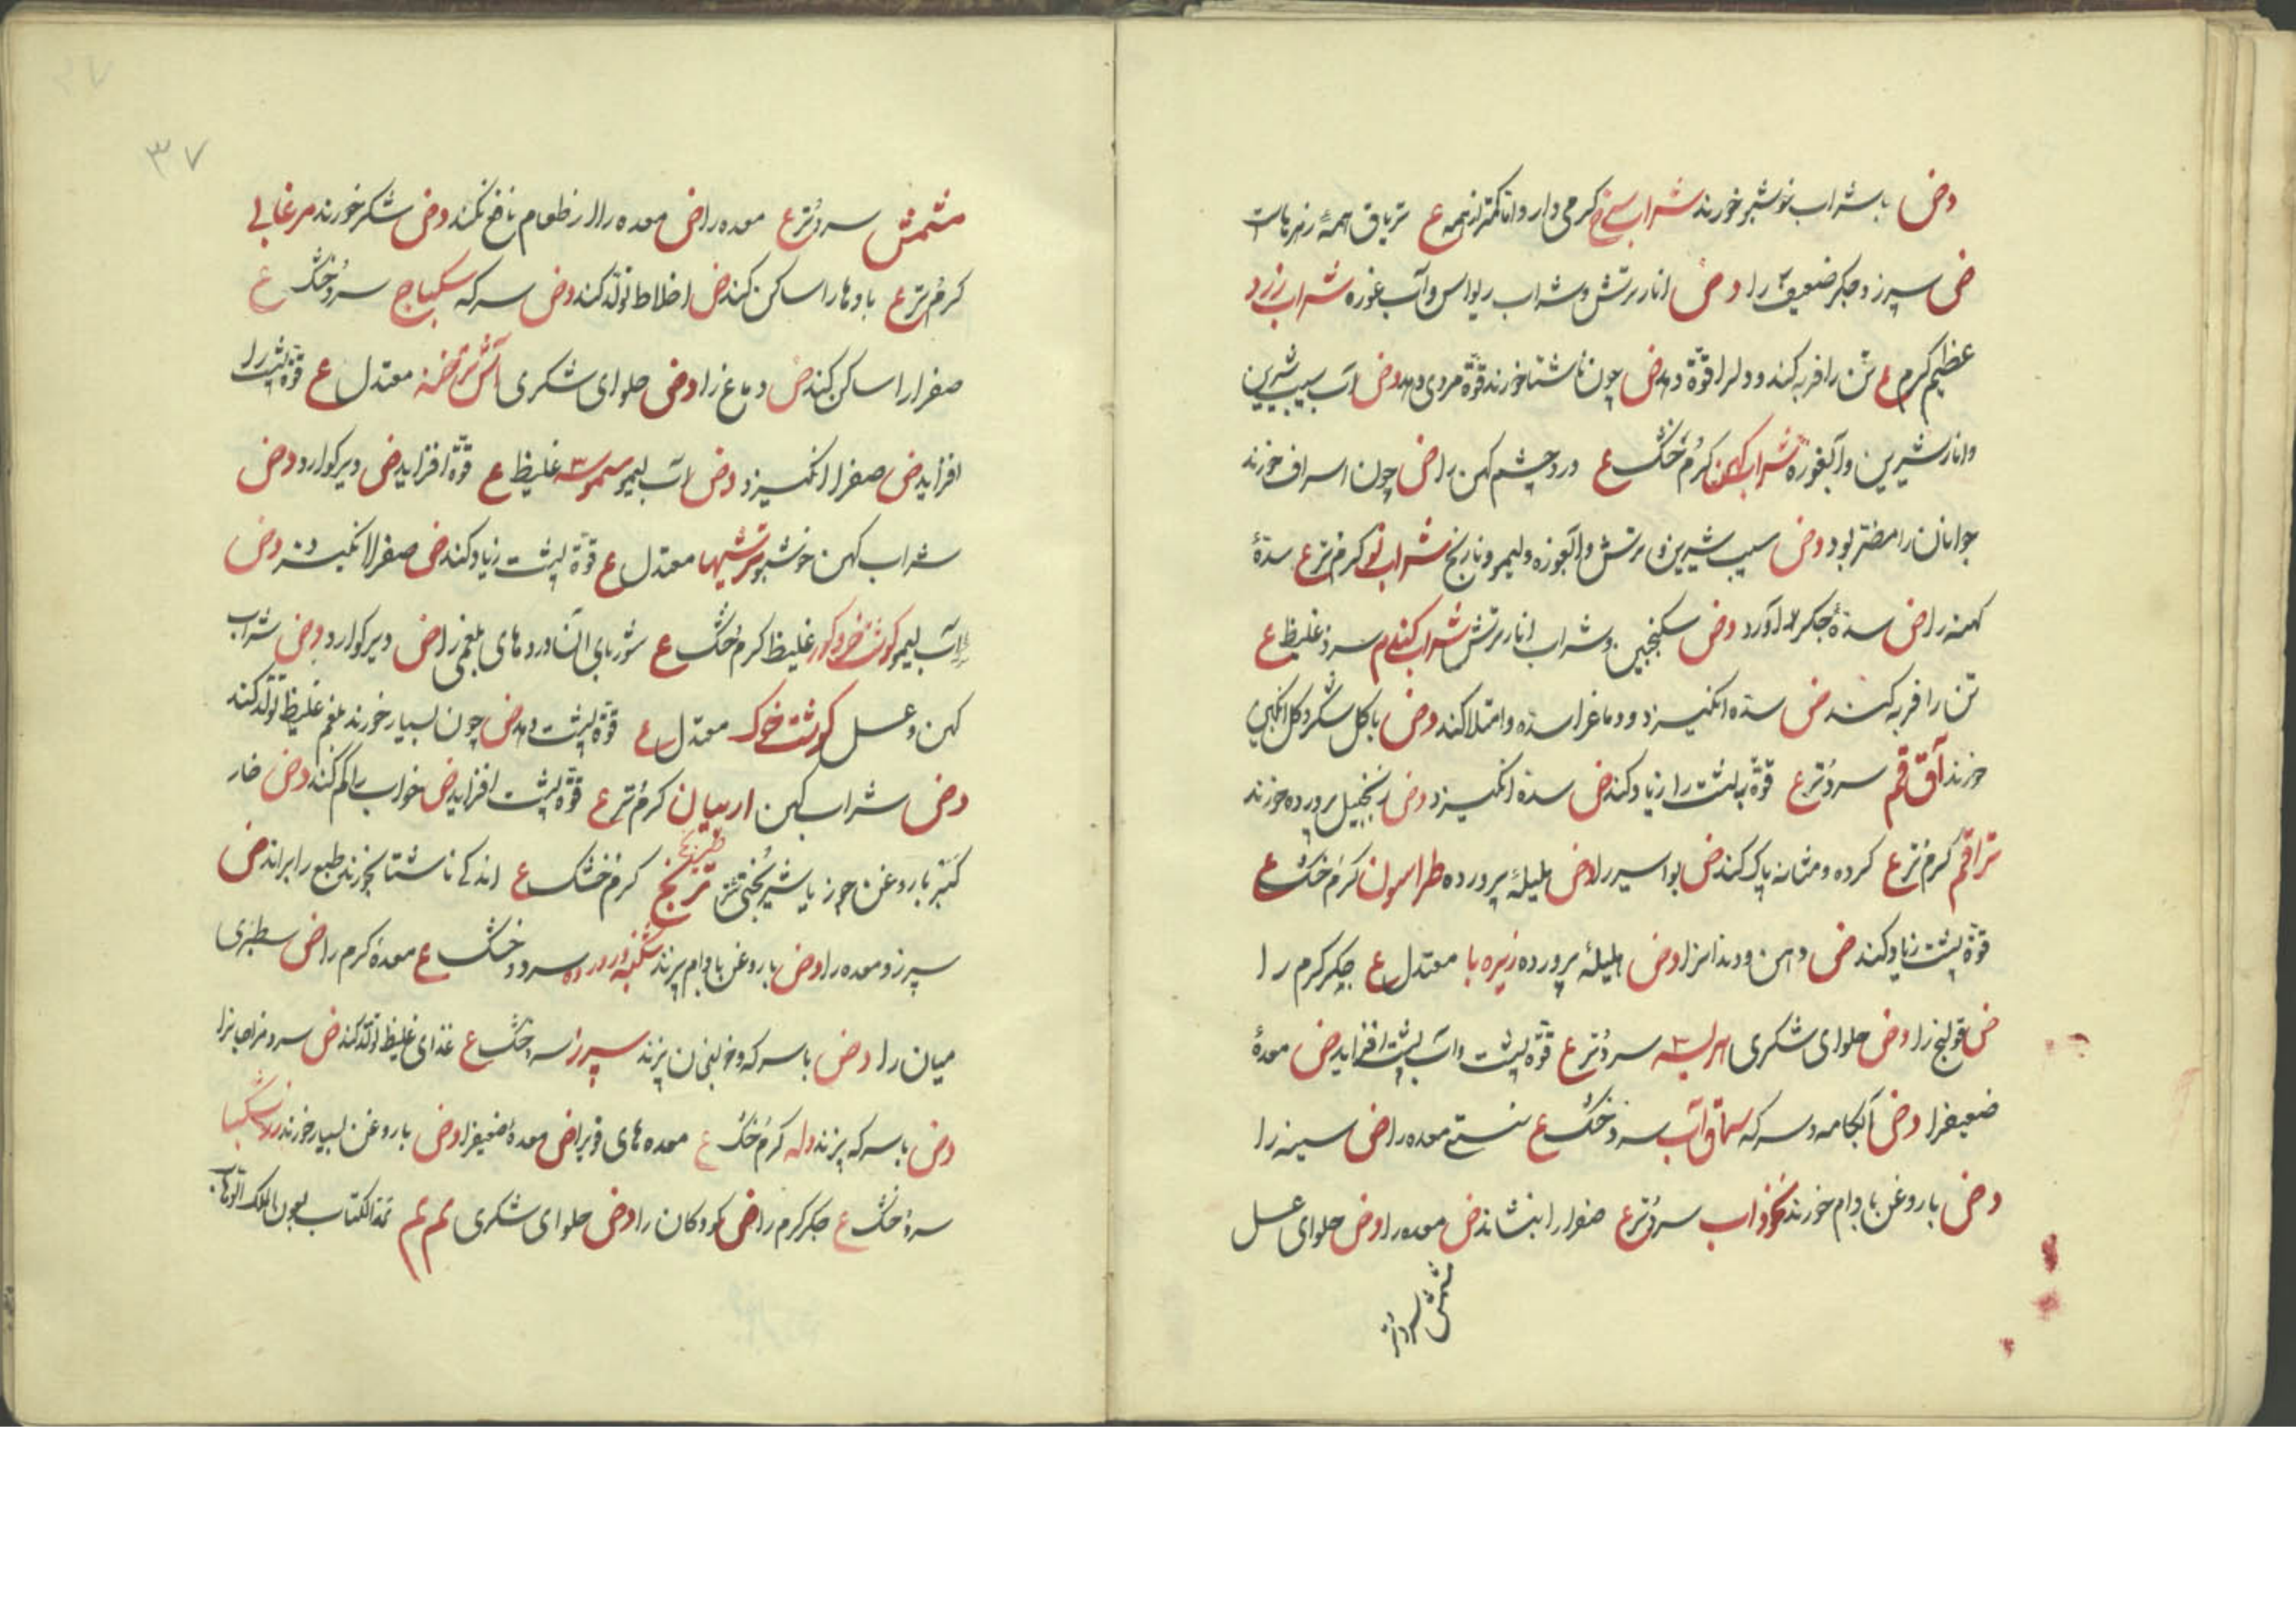 وض با شراب خوشبو خورند شراب سرخ گرمی دارد اما کمتر از همه ع تریاق همهٔ زهرهاست
ض سپرز و جگر ضعیف را وض انار ترش و شراب ریواس و آب غوره شراب زرد
عظیم گرم ع تن را فربه کند و دل را قوّة دهد ض چون ناشتا خورند قوّة مردی دهد وض آب سیب شیرین
و انار شیرین و آبغوره شراب کهن گرمُ خشک ع درد چشم کهن را ض چون اسراف خورند
جوانان را مضرّ بود وض سیب شیرین و ترش و آبغوره و لیمو و نارنج شراب نو گرم تر ع سدّهٔ
کهنه را ض سدّهٔ جگر آورد وض سکنجبین و شراب انار ترش شراب گندم سرد غلیظ ع
تن را فربه کند ض سدّه انگیزد و دماغ را سدّه و امتلا کند وض با گل شکر و گل انگبین
خورند آق قم سردُ تر ع قوّة پشت را زیاد کند ض سدّه انگیزد وض زنجبیل پرورده خورند
تراقم گرمُ تر ع گرده و مثانه پاک کند ض بواسیر را وض هلیلهٔ پرورده طراسون گرمُ خشک ع
قوّة پشت زیاد کند ض دهن و دندانرا وض هلیلهٔ پرورده زیره با معتدل ع جگر گرم را
ض قولنج را وض حلوای شکری هریسه سردُ تر ع قوّة پشت و آب پشت افزاید ض معدهٔ
ضعیفرا وض آبکامه و سرکه سماق آب سردُ خشک ع سستی معده را ض سینه را
وض با روغن بادام خورند نخوذاب سردُ تر ع صفرا را بنشاند ض معده را وض حلوای عسل
مشمش سردُ تر
۳۷
مشمش سردُ تر ع معده را ض معده را از طعام ناضج نکند وض شکر خورند مرغابی
گرمُ تر ع بادها را ساکن کند ض اخلاط تولّد کند وض سرکه سکباج سردُ خشک ع
صفرا را ساکن کند ض دماغ را وض حلوای شکری آش معتدل ع قوّة پشت را
افزاید ض صفرا انگیزد وض آب لیمو سموسه غلیظ ع قوّة افزاید ض دیر گوارد وض
شراب کهن خوشبو ترشیها معتدل ع قوّة پشت زیاد کند ض صفرا انگیزد وض
آب لیمو گوشت غلیظ گرمُ خشک ع شوربای آن دردهای بلغمی را ض دیر گوارد وض شراب
کهن و عسل گوشت خوک معتدل ع قوّة پشت دهد ض چون بسیار خورند بلغم غلیظ تولّد کند
وض شراب کهن اربیان گرمُ تر ع قوّة پشت افزاید ض خواب را کم کند وض خار
کبتر با روغن جوز یا شیر ترنج گرمُ خشک ع اندکی ناشتا بخورند طبع را براند ض
سپرز و معده را وض با روغن بادام پزند شکنبه و روده سرد و خشک ع معدهٔ گرم را ض سطبری
میان را وض با سرکه و خولنجان پزند سپرز سردُ خشک ع غذای غلیظ تولّد کند ض سرد مزاجانرا
وض با سرکه پزند دله گرمُ خشک ع معده‌های قوی را ض معدهٔ ضعیفرا وض با روغن بسیار خورند زرشکبا
سردُ خشک ع جگر گرم را ض کودکان را وض حلوای شکری تم تم تمة الکتاب بعون الملک الوهاب